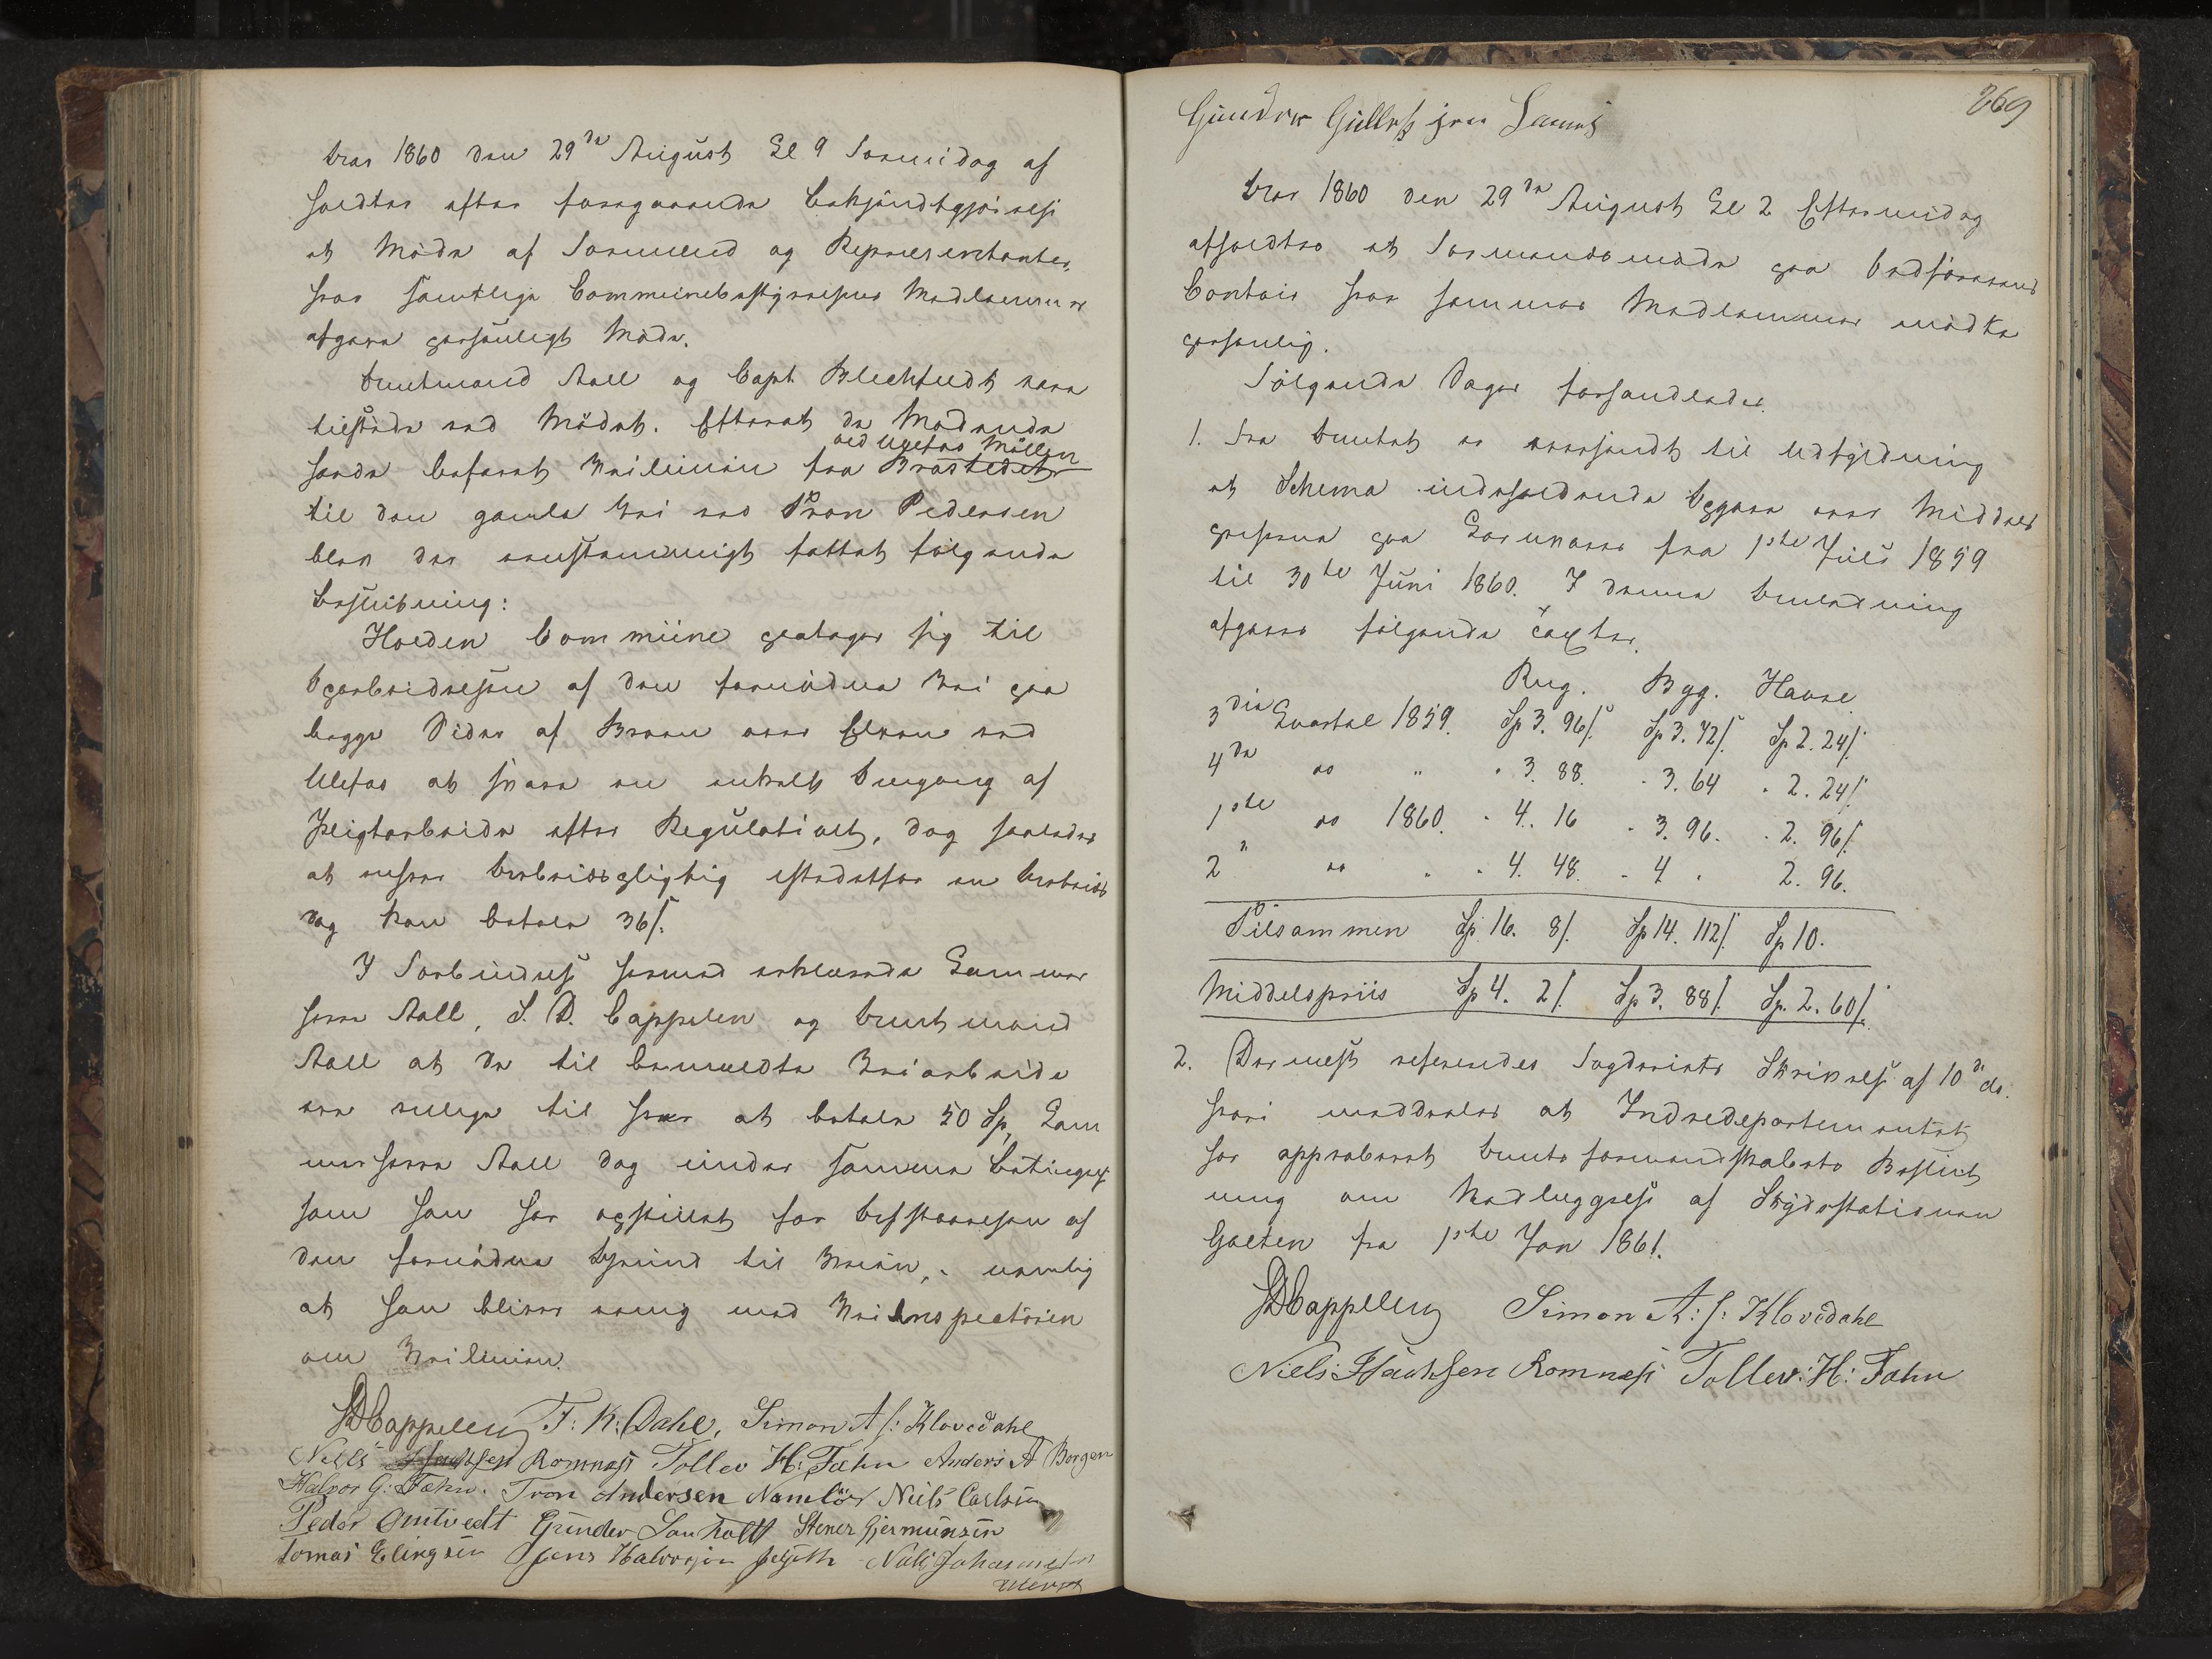 Aar 1860 den 29de August Kl 9 Formidag af
holdtes efter foregaaende Bekjendtgjörelse
et Möde af Formænd og Repræsentanter,
hvor samtlige Communebestyrelsens Medlemmer
afgave personligt Möde.
Amtmand Aall og Capt. Blechfeldt vare
tilstæde ved Mödet. Efterat de Mødende
ved Ulefos Möllen
havde befaret Veilinien fra Brostedet
til den gamle Vei ved Tron Pedersen
blev der eenstemmigt fattet følgende
Beslutning:
Holden Commune paatager sig til
Oparbeidelsen af den fornödne Vei paa
begge Sider af Broen over Elven ved
Ulefos at svare en enkelt Omgang af
Pligtarbeide efter Regulativet, dog saaledes
at enhver Arbeidspligtig istedetfor en Arbeids
dag kan betale 36 s.
I Forbindelse hermed erklærede Kammer
herre Aall, S. D. Cappelen og Amtmand
Aall at de til bemeldte Veiarbeide
ere villige til hver at betale 50 Sp, Kam
merherre Aall dog under samme Betingelse
som han har opstillet for Afstaaelsen af
den fornödne Grund til Veien, nemlig
at han bliver enig med Veiinspectören
om Veilinien.
SDCappelen F: K: Dahl, Simon A s: Klovedahl
Niels Isaksen Romnæs Tollev H: Fæhn Anders A Borgen
Halvor G: Fæhn. Tron Andersen Namlös Niels Carlsen
Peder Omtvedt Gunder Sanholtt Stener Gjermunsen
Tomas Elingsen Jens Halvorsen Niels Johannesen
269
Gunder Gullech jen
Aar 1860 den 29de August Kl 2 Eftermidag
afholdtes et Formandsmöde paa Ordförerens
Contoir hvor sammes Medlemmer mödte
personlig.
Fölgende Sager forhandledes.
1. Fra Amtet er oversendt til Udfyldning
et Schema indeholdende Opgave over Middels
priserne paa Kornvarer fra 1ste Juli 1859
til 30te Juni 1860. I denne Anledning
afgaves fölgende Taxter.
Rug. Byg. Havre
3die Qvartal 1859. Sp 3. 96 s. Sp 3. 72 s. Sp 2. 24 s.
4de do " " 3. 88. " 3. 64 " 2. 24 s.
1ste do 1860. " 4. 16 " 3. 96. " 2. 96 s.
2 " do " " 4. 48. " 4 " 2. 96.
Tilsammen Sp 16. 8 s. Sp 14. 112 s. Sp 10.
Middelspriis Sp 4. 2 s. Sp 3. 88 s. Sp. 2. 60 s.
2. Dernæst refereredes Fogderiets Skrivelse af 10de ds.
hvori meddeles at Indredepartementet
har approberet Amtsformandskabets Beslut
ning om Nedlæggelse af Skydsstationen
Golten fra 1ste Jan 1861.
SDCappelen Simon A: s: Klovedahl
Niels Isaksen Romnæs Tollev: H: Fæhn